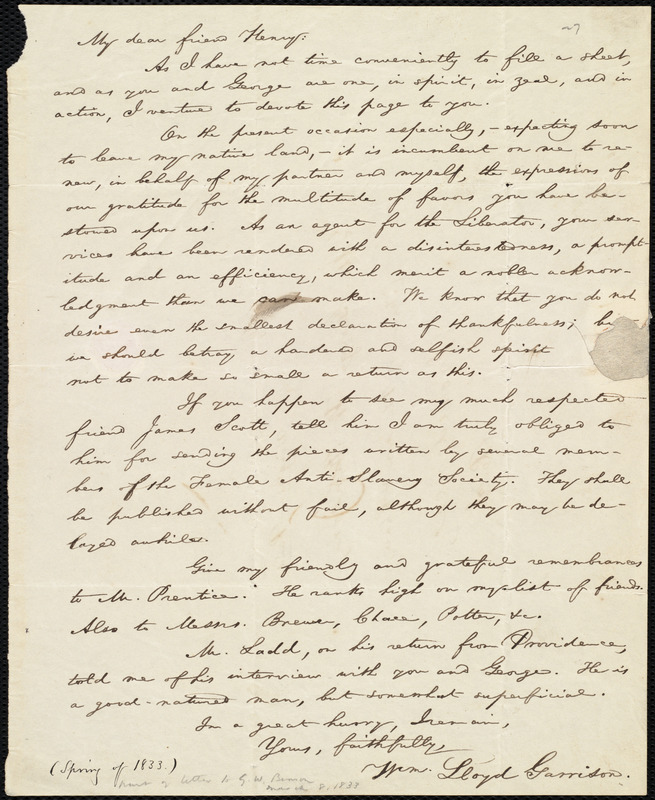 27
My dear friend Henry:
As I have not time conveniently to fill a sheet,
and as you and George are one, in spirit, in zeal, and in
action, I venture to devote this page to you.
On the present occasion especially, – expecting soon
to leave my native land, – it is incumbent on me to re-
new, in behalf of my partner and myself, the expressions of
our gratitude for the multitude of favors you have be-
stowed upon us. As an agent for the Liberator, your ser-
vices have been rendered with a disinterestedness, a prompt-
itude and an efficiency, which merit a nobler acknow-
ledgment than we can make. We know that you do not
desire even the smallest declaration of thankfulness; but
we should betray a hardened and selfish spirit
not to make so small a return as this.
If you happen to see my much respected
friend James Scott, tell him I am truly obliged to
him for sending the pieces written by several mem-
bers of the Female Anti-Slavery Society. They shall
be published without fail, although they may be de-
layed awhile.
Give my friendly and grateful remembrances
to Mr. Prentice. He ranks high on my list of friends.
Also to Messrs. Brewer, Chace, Potter, &c.
Mr. Ladd, on his return from Providence,
told me of his interview with you and George. He is
a good-natured man, but somewhat superficial.
In a great hurry, I remain,
Yours, faithfully,
Wm. Lloyd Garrison.
(Spring of 1833.)
part of letter to G. W. Benson
March 8, 1833